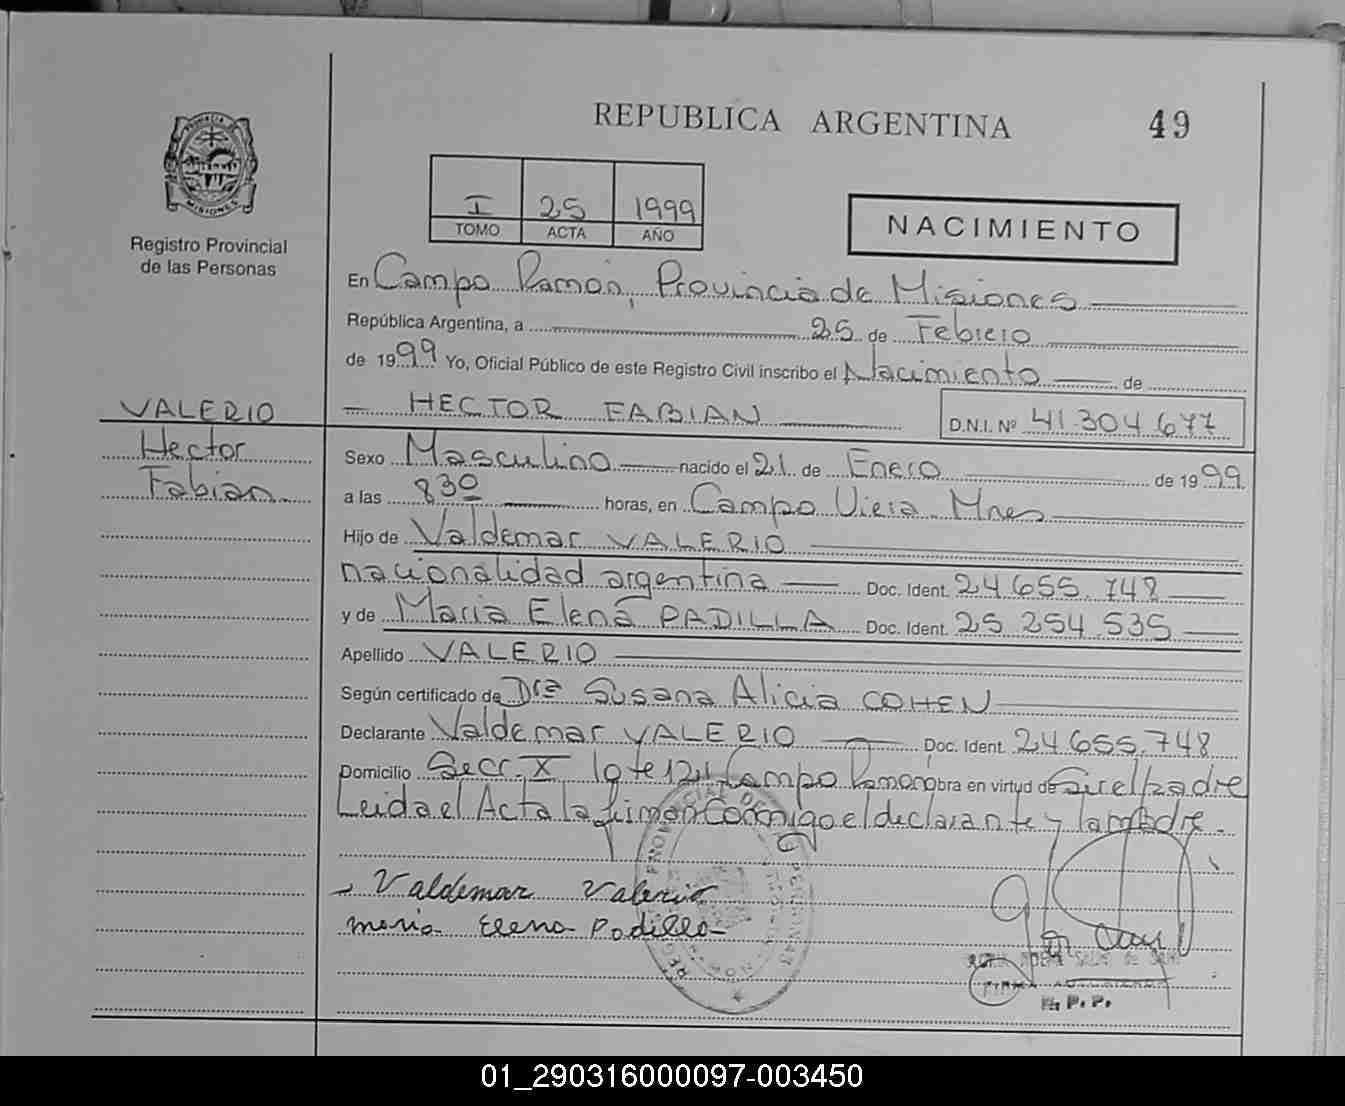 REPUBLICA ARGENTINA 49
PROVINCIA DE MISIONES
Registro Provincial
de las Personas
I 25 1999
TOMO ACTA AÑO
NACIMIENTO
En Campo Ramón, Provincia de Misiones
República Argentina, a 25 de Febrero
de 1999 Yo, Oficial Público de este Registro Civil inscribo el Nacimiento de
HECTOR FABIAN D.N.I. Nº 41.304.677
VALERIO
Hector
Fabian
Sexo Masculino nacido el 21 de Enero de 1999
a las 830 horas, en Campo Viera Mnes
Hijo de Valdemar VALERIO
nacionalidad argentina Doc. Ident. 24.655.748
y de Maria Elena PADILLA Doc. Ident. 25.254.535
Apellido VALERIO
Según certificado de Dra Susana Alicia COHEN
Declarante Valdemar VALERIO Doc. Ident. 24.655.748
Domicilio Secc. X lote 121 Campo Ramón obra en virtud de Ser el padre
Leida el Acta la firman Conmigo el declarante y la madre.
Valdemar Valerio
maria Elena Padilla
R.P.P.
01_290316000097-003450